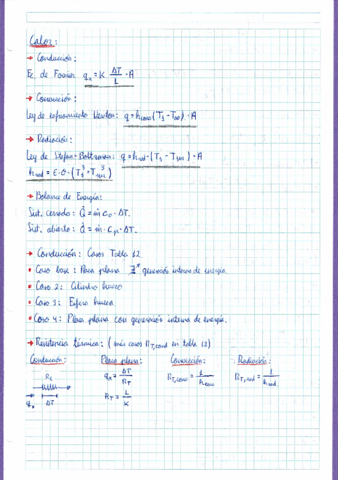 Calor:
→ Conducción:
Ec. de Fourier q_x = K ΔT/L · A
→ Convección:
Ley de enfriamiento Newton: q = h_conv (T_s - T_∞) · A
→ Radiación:
Ley de Stefan-Boltzmann: q = h_rad · (T_s - T_sur) · A
h_rad = ε · σ · (T_s^3 + T_sur^3)
→ Balance de Energía:
Sist. cerrado: Q̇ = ṁ c_v · ΔT.
Sist. abierto: Q̇ = ṁ · c_p · ΔT.
→ Conducción: Casos Tabla 12
• Caso base: Placa plana generación interna de energía.
• Caso 2: Cilindro hueco
• Caso 3: Esfera hueca
• Caso 4: Placa plana con generación interna de energía.
→ Resistencia térmica: (más casos R_T,cond en tabla 12)
Conducción: Placa plana: Convección: Radiación:
R_t q_x = ΔT/R_T R_T,conv = 1/h_conv R_T,rad = 1/h_rad
q_x ΔT R_T = L/K